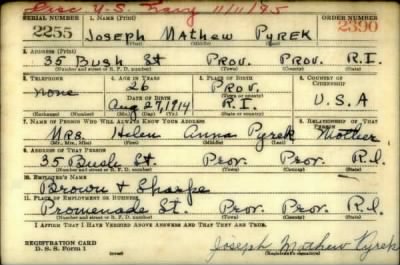 Disc U.S. Navy 11/11/95
SERIAL NUMBER 1. NAME (Print) ORDER NUMBER
2255 JOSEPH MATHEW PYREK 2390
2. ADDRESS (Print)
35 Bush St PROV. PROV. R.I.
(Number and street or R. F. D. number) (Town) (County) (State)
3. TELEPHONE 4. AGE IN YEARS 5. PLACE OF BIRTH 6. COUNTRY OF CITIZENSHIP
none 26 PROV.
DATE OF BIRTH (Town or county)
Aug 27, 1914 R.I. U.S.A
(Exchange) (Number) (Mo.) (Day) (Yr.) (State or country)
7. NAME OF PERSON WHO WILL ALWAYS KNOW YOUR ADDRESS 8. RELATIONSHIP OF THAT PERSON
Mrs. Helen Anna Pyrek Mother
(Mr., Mrs., Miss) (First) (Middle) (Last)
9. ADDRESS OF THAT PERSON
35 Bush St. Prov. Prov. R.I.
(Number and street or R. F. D. number) (Town) (County) (State)
10. EMPLOYER'S NAME
Brown & Sharpe
11. PLACE OF EMPLOYMENT OR BUSINESS
Promenade St. Prov. Prov. R.I.
(Number and street or R. F. D. number) (Town) (County) (State)
I AFFIRM THAT I HAVE VERIFIED ABOVE ANSWERS AND THAT THEY ARE TRUE.
REGISTRATION CARD
D. S. S. Form 1 Joseph Mathew Pyrek
(Registrant's signature)